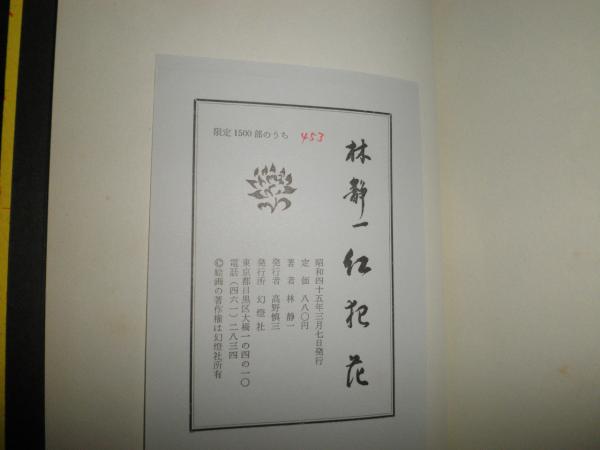 林静一 紅犯花
限定1500部のうち 453
昭和四十五年三月七日発行
定価 八八〇円
著者 林静一
発行者 高野慎三
発行所 幻燈社
東京都目黒区大橋一の四の一〇
電話（四六一）二八三四
©絵画の著作権は幻燈社所有